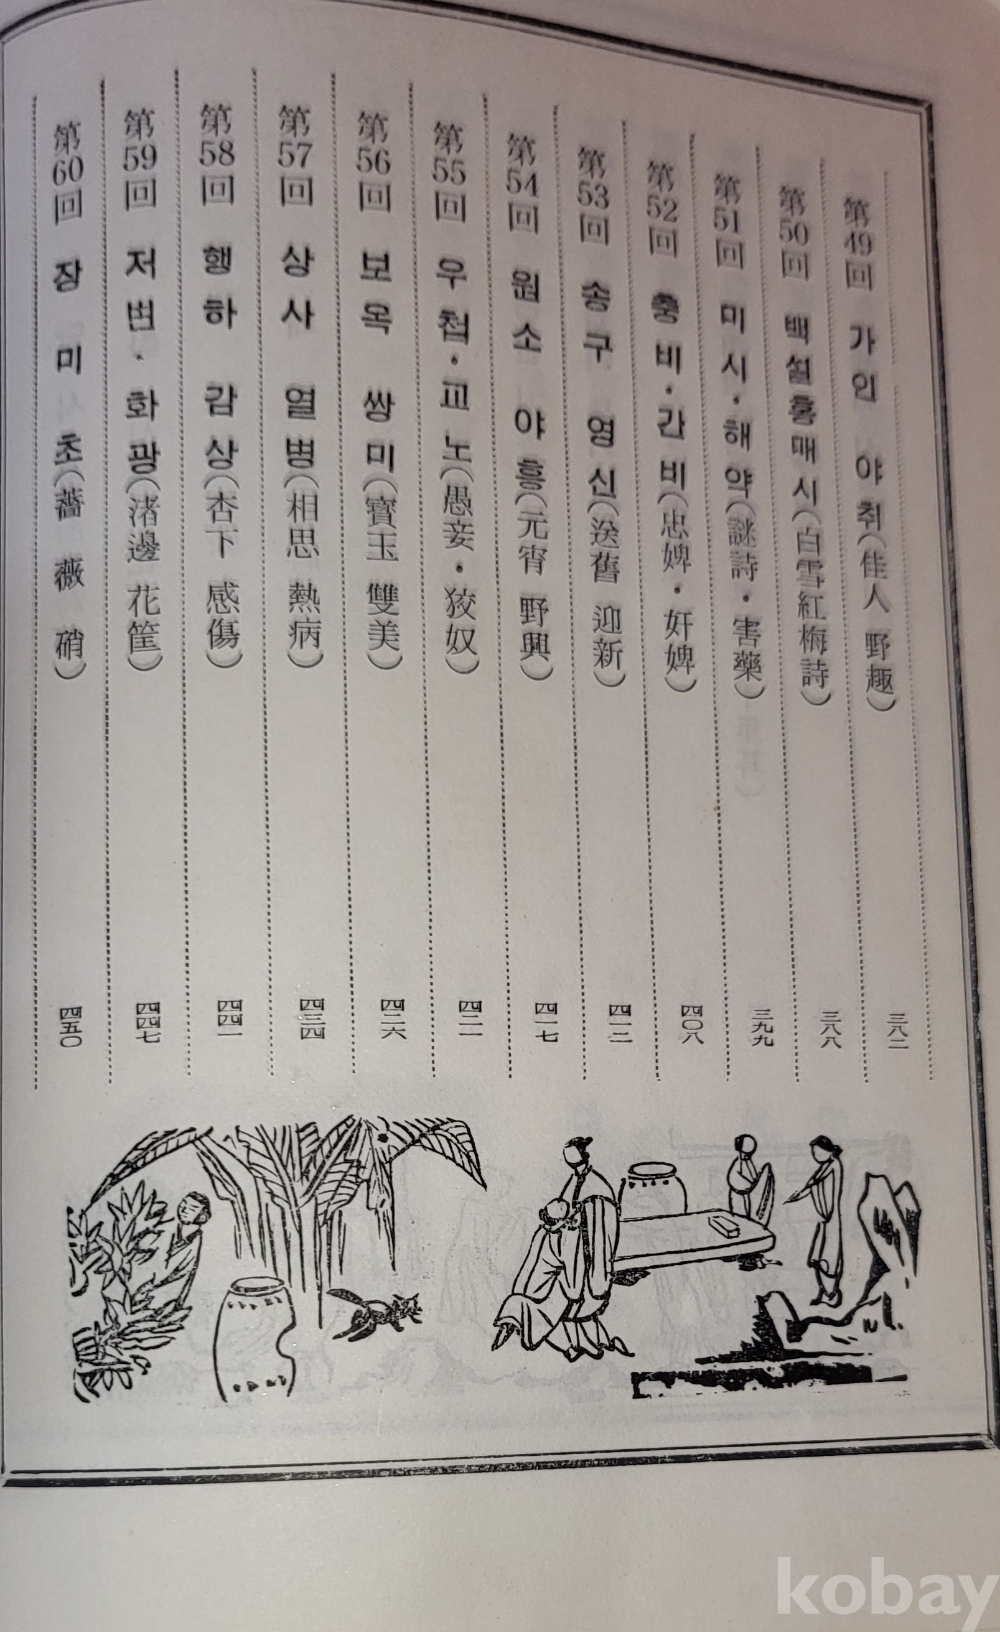 第49回 가인 야취(佳人 野趣) 三八二
第50回 백설홍매시(白雪紅梅詩) 三八八
第51回 미시·해약(謎詩·害藥) 三九九
第52回 충비·간비(忠婢·奸婢) 四〇八
第53回 송구 영신(送舊 迎新) 四一二
第54回 원소 야흥(元宵 野興) 四一七
第55回 우첩·교노(愚妾·狡奴) 四二一
第56回 보옥 쌍미(寶玉 雙美) 四二六
第57回 상사 열병(相思 熱病) 四三四
第58回 행하 감상(杏下 感傷) 四四一
第59回 저변·화광(渚邊 花筐) 四四七
第60回 장미초(薔薇硝) 四五〇
kobay